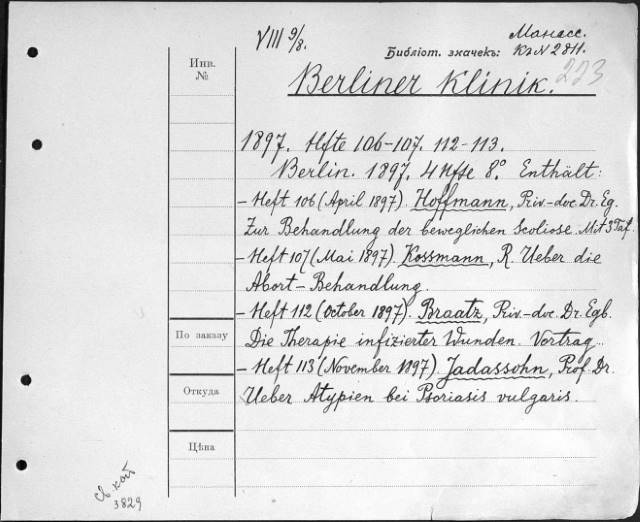 VIII 9/8.
Манасс.
Библіот. значекъ: Къ N 2811.
Инв.
№
223
Berliner Klinik.
1897. Hfte 106-107. 112-113.
Berlin. 1897. 4 Hfte 8.° Enthält:
– Heft 106 (April 1897). Hoffmann, Priv.-doc. Dr. Eg.
Zur Behandlung der beweglichen Scoliose. Mit 3 Taf.
– Heft 107 (Mai 1897). Kossmann, R. Ueber die
Abort-Behandlung.
– Heft 112 (October 1897). Braatz, Priv.-doc. Dr. Egb.
По заказу
Die Therapie infizierter Wunden. Vortrag.
– Heft 113 (November 1897). Jadassohn, Prof. Dr.
Откуда
Ueber Atypien bei Psoriasis vulgaris.
Цѣна
3829